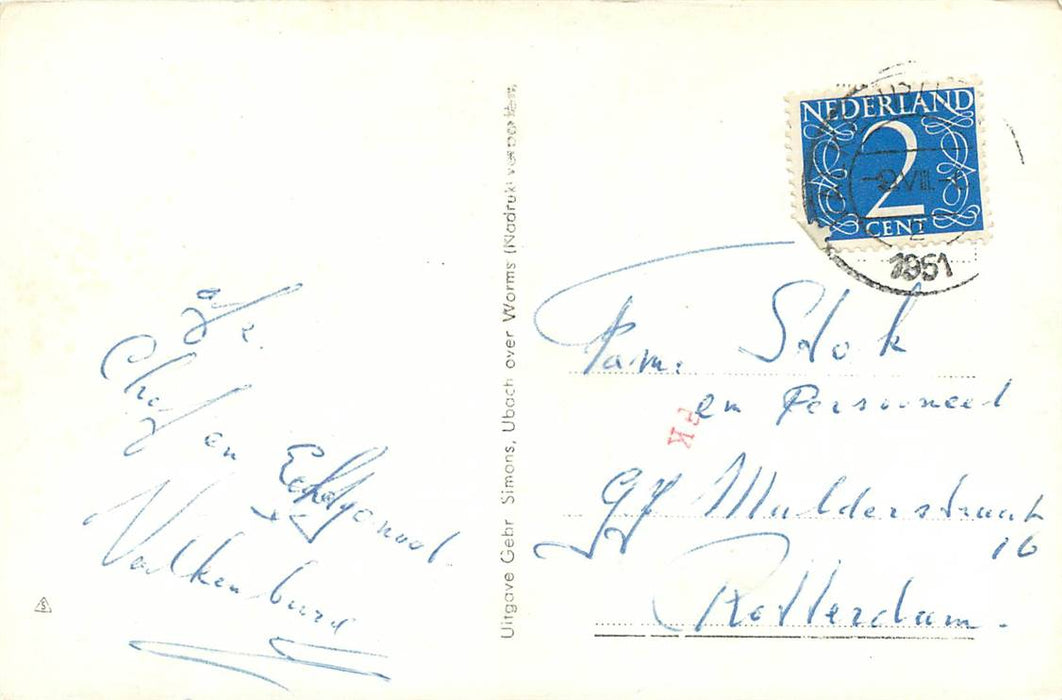 afz.
Chef en
Echtgenoot
Valkenburg
Uitgave Gebr Simons, Ubach over Worms (Nadruk verboden)
NEDERLAND
2
CENT
VIII
2
1951
Fam. Stok
en Personeel
PK
GJ Mulderstraat
16
Rotterdam.
S